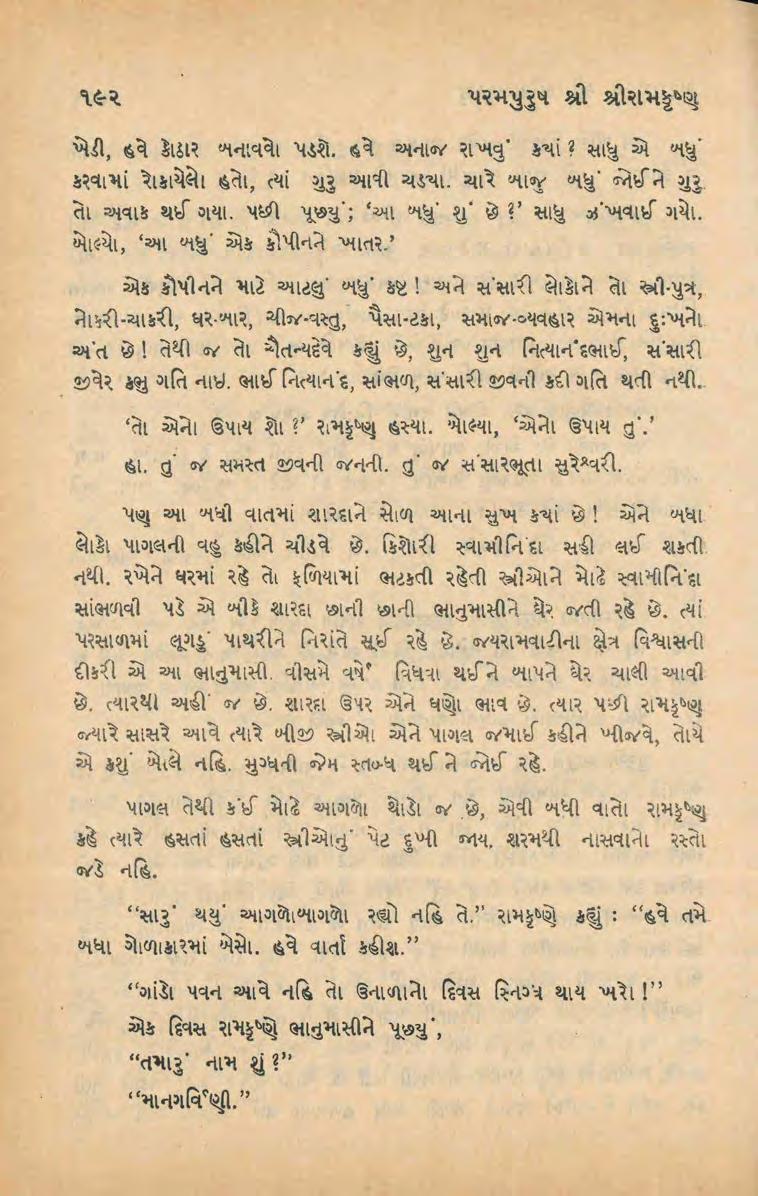 ૧૯૨ પરમપુરુષ શ્રી શ્રીરામકૃષ્ણ
ખેડી, હવે કોઠાર બનાવવો પડશે. હવે અનાજ રાખવું ક્યાં ? સાધુ એ બધું
કરવામાં રોકાયેલો હતો, ત્યાં ગુરુ આવી ચડ્યા. ચારે બાજુ બધું જોઈને ગુરુ
તો અવાક થઈ ગયા. પછી પૂછ્યું; ‘આ બધું શું છે ?’ સાધુ ઝંખવાઈ ગયો.
બોલ્યો, ‘આ બધું એક કૌપીનને ખાતર.’
એક કૌપીનને માટે આટલું બધું કષ્ટ ! અને સંસારી લોકોને તો સ્ત્રી-પુત્ર,
નોકરી-ચાકરી, ઘર-બાર, ચીજ-વસ્તુ, પૈસા-ટકા, સમાજ-વ્યવહાર એમના દુઃખનો
અંત છે ! તેથી જ તો ચૈતન્યદેવે કહ્યું છે, શુન શુન નિત્યાનંદભાઈ, સંસારી
જીવેર કભુ ગતિ નાઇ. ભાઈ નિત્યાનંદ, સાંભળ, સંસારી જીવની કદી ગતિ થતી નથી.
‘તો એનો ઉપાય શો ?’ રામકૃષ્ણ હસ્યા. બોલ્યા, ‘એનો ઉપાય તું.’
હા. તું જ સમસ્ત જીવની જનની. તું જ સંસારભૂતા સુરેશ્વરી.
પણ આ બધી વાતમાં શારદાને સોળ આના સુખ ક્યાં છે ! એને બધા
લોકો પાગલની વહુ કહીને ચીડવે છે. કિશોરી સ્વામીનિંદા સહી લઈ શકતી
નથી. રખેને ઘરમાં રહે તો ફળિયામાં ભટકતી રહેતી સ્ત્રીઓને મોઢે સ્વામીનિંદા
સાંભળવી પડે એ બીકે શારદા છાની છાની ભાનુમાસીને ઘેર જતી રહે છે. ત્યાં
પરસાળમાં લૂગડું પાથરીને નિરાંતે સૂઈ રહે છે. જયરામવાટીના ક્ષેત્ર વિશ્વાસની
દીકરી એ આ ભાનુમાસી. વીસમે વર્ષે વિધવા થઈને બાપને ઘેર ચાલી આવી
છે. ત્યારથી અહીં જ છે. શારદા ઉપર એને ઘણો ભાવ છે. ત્યાર પછી રામકૃષ્ણ
જ્યારે સાસરે આવે ત્યારે બીજી સ્ત્રીઓ એને પાગલ જમાઈ કહીને ખીજવે, તોયે
એ કશું બોલે નહિ. મુગ્ધની જેમ સ્તબ્ધ થઈ ને જોઈ રહે.
પાગલ તેથી કંઈ મોઢે આગળો થોડો જ છે, એવી બધી વાતો રામકૃષ્ણ
કહે ત્યારે હસતાં હસતાં સ્ત્રીઓનું પેટ દુખી જાય. શરમથી નાસવાનો રસ્તો
જડે નહિ.
“સારું થયું આગળોબાગળો રહ્યો નહિ તે.” રામકૃષ્ણે કહ્યું : “હવે તમે
બધા ગોળાકારમાં બેસો. હવે વાર્તા કહીશ.”
“ગાંડો પવન આવે નહિ તો ઉનાળાનો દિવસ સ્નિગ્ધ થાય ખરો !”
એક દિવસ રામકૃષ્ણે ભાનુમાસીને પૂછ્યું,
“તમારું નામ શું ?”
“માનગર્વિણી.”